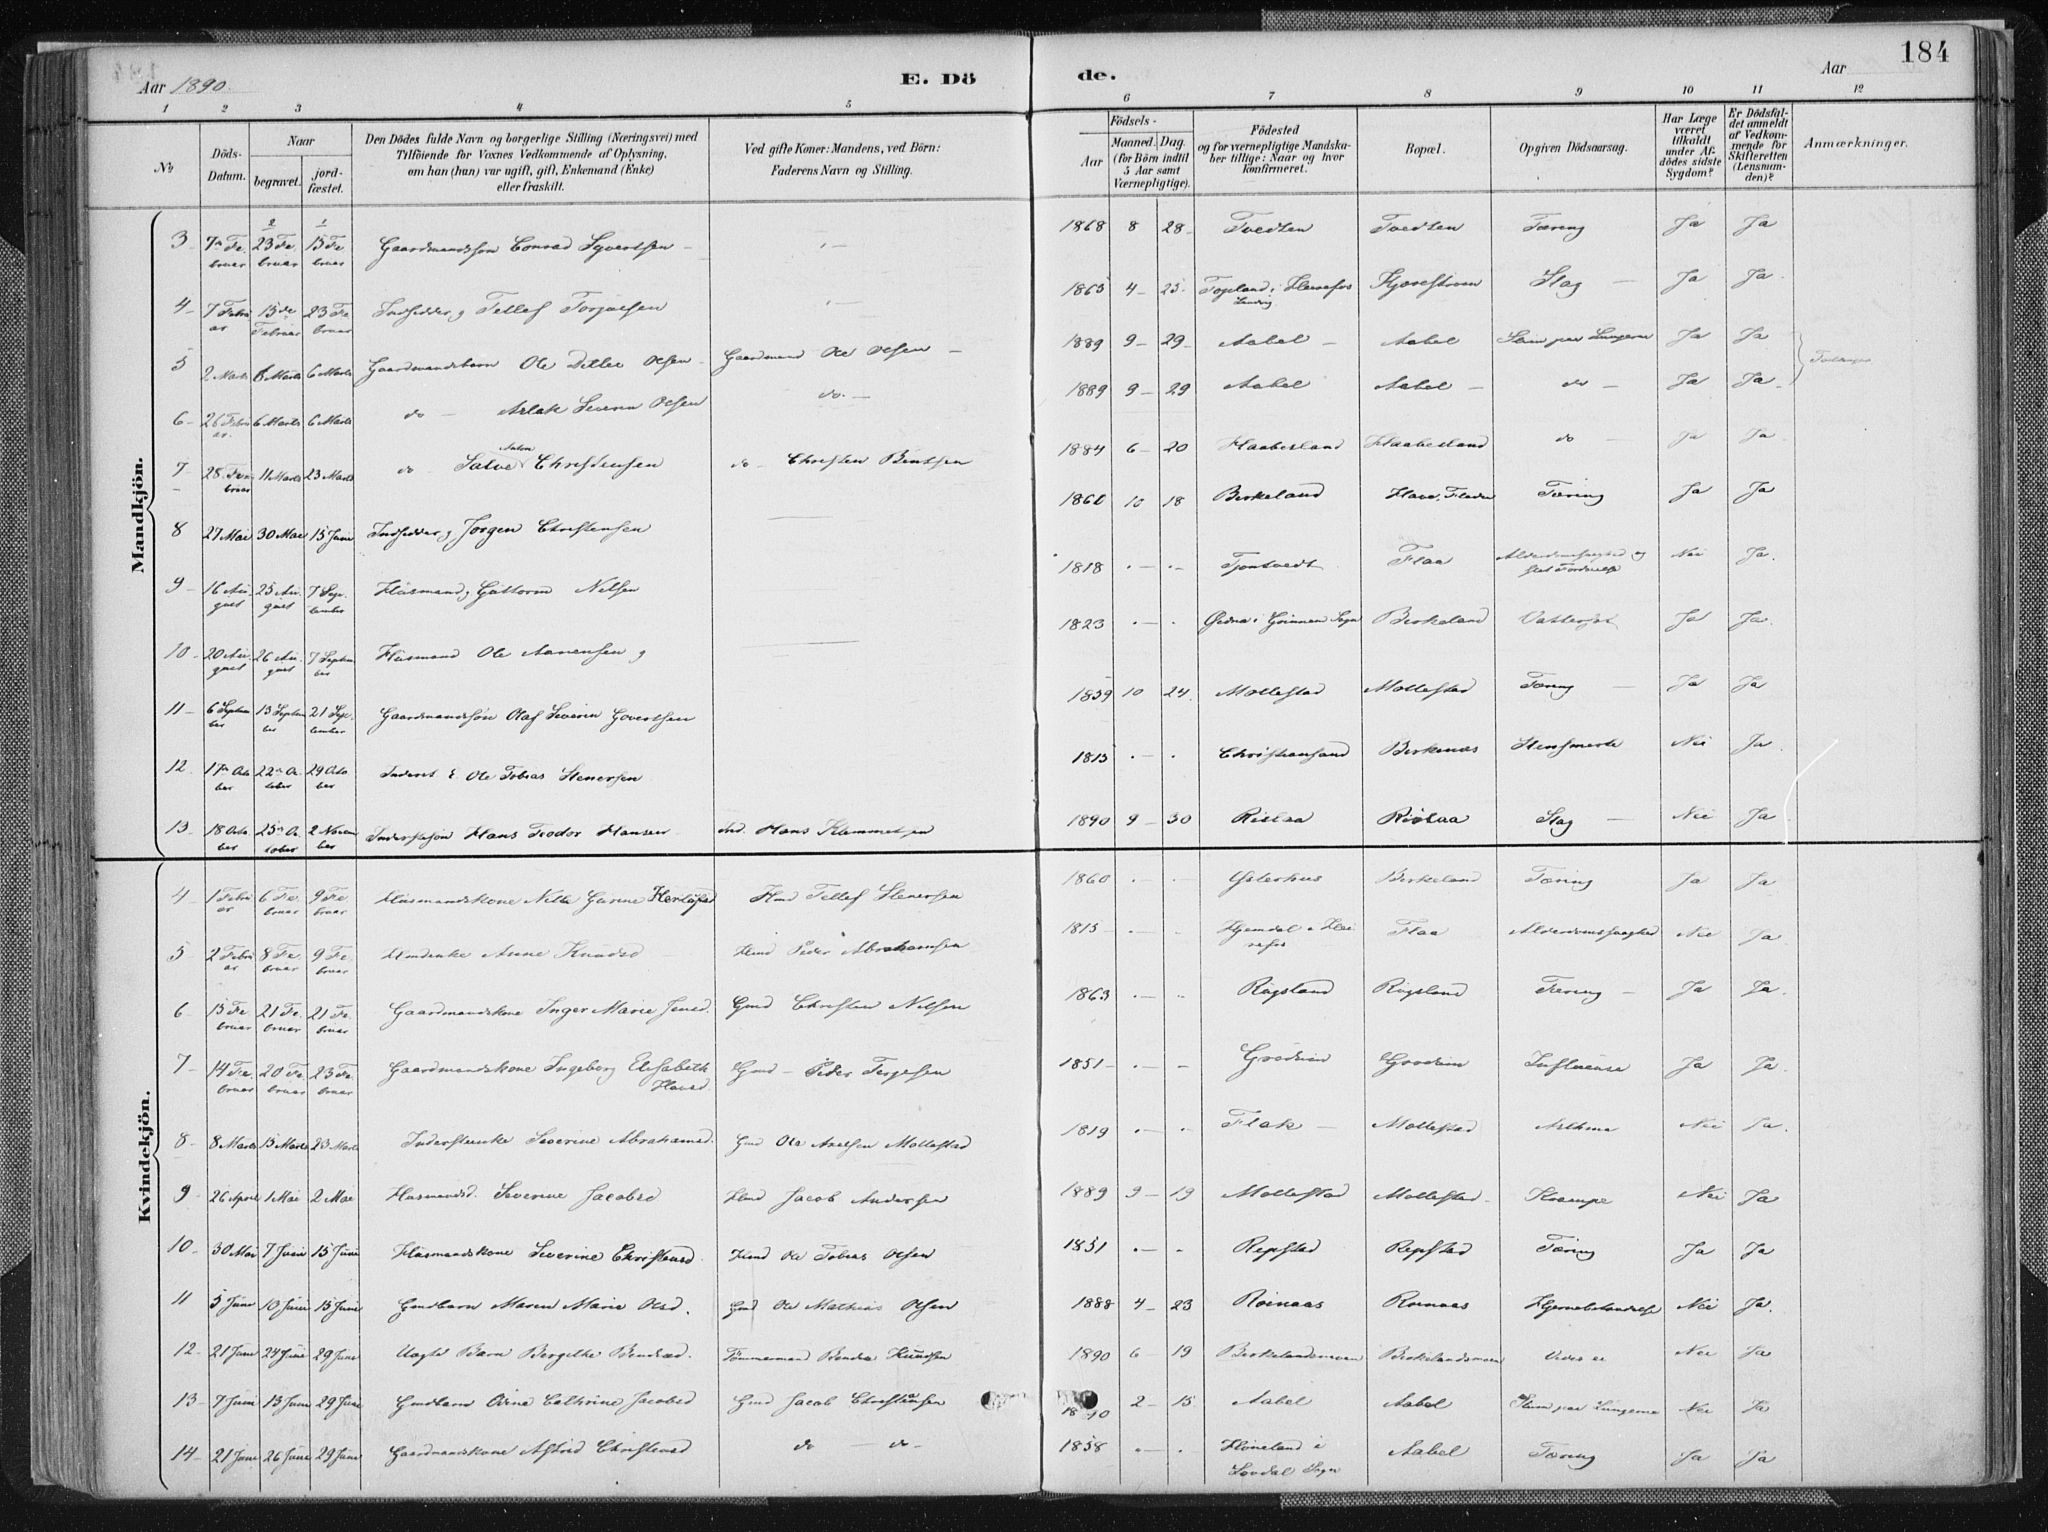 184
Aar 1890.
E. Dö
de.
Aar
1 2 3 4 5 6 7 8 9 10 11 12
No
Döds-Datum.
Naar
begravet.
jord-fæstet.
Den Dödes fulde Navn og borgerlige Stilling (Næringsvei) med
Tilföiende for Voxnes Vedkommende af Oplysning,
om han (hun) var ugift, gift, Enkemand (Enke)
eller fraskilt.
Ved gifte Koner: Mandens, ved Börn:
Faderens Navn og Stilling.
Födsels-
Aar
Maaned. Dag.
(for Börn indtil
5 Aar samt
Værnepligtige).
Födested
og for værnepligtige Mandska-
ber tillige: Naar og hvor
konfirmeret.
Bopæl.
Opgiven Dödsaarsag.
Har Læge
været
tilkaldt
under Af-
dödes sidste
Sygdom?
Er Dödsfal-
det anmeldt
af Vedkom-
mende for
Skifteretten
(Lensman-
den)?
Anmærkninger.
Mandkjön.
3 7de Februar 23 Februar 15 Februar Gaardmandssøn Conrad Syvertsen 1868 8 28 Tvedten Tvedten Tæring Ja Ja
4 7 Februar 15de Februar 23 Februar Indsidder, Tellef Torjusen 1865 4 25 Slag Ja Ja
5 2 Marts 6 Marts 6 Marts Gaardmandsbarn Ole Olsen Gaardmand Ole Olsen 1889 9 29 Aabel Aabel Slim paa Lungerne Ja Ja
6 26 Februar 6 Marts 6 Marts do Aslak Severin Olsen do 1889 9 29 Aabel Aabel do Ja Ja
7 28 Februar 11 Marts 23 Marts do Salve Anton Christensen do Christen Bentsen 1884 6 20 Haabesland Haabesland do Ja Ja
8 27 Mai 30 Mai 15 Juni Indsidder, Jørgen Christensen 1860 10 18 Birkeland Tæring Ja Ja
9 16 August 25 August 7 September Husmand, Guttorm Nilsen 1818 Tjomtvedt Flaa Nei Ja
10 20 August 26 August 7 September Husmand Ole Aanensen 1823 Birkeland Vattersot Ja Ja
11 6 September 13 September 21 September Gaardmandssøn Olaf Severin Govertsen 1859 10 24 Mollestad Mollestad Tæring Ja Ja
12 17de October 22de October 29 October Inderst E Ole Tobias Stenersen 1815 Christiansand Birkenes Stensmerte Nei Ja
13 18 October 25de October 2 November Inderstssøn Hans Teodor Hansen Ind. Hans Klemmetsen 1890 9 30 Rislaa Rislaa Slag Nei Ja
Kvindekjön.
4 1 Februar 6 Februar 9 Februar Husmandskone Nille Gurine Hmd Tellef Stenersen 1860 Østerhus Birkeland Tæring Ja Ja
5 2 Februar 8 Februar 9 Februar Hmdenke Anne Knudsd Hmd Peder Abrahamsen 1815 Flaa Alderdomssvaghed Nei Ja
6 15 Februar 21 Februar 21 Februar Gaardmandskone Inger Marie Jensd. Gmd Christen Nilsen 1863 Rugsland Rugsland Tæring Ja Ja
7 14 Februar 20 Februar 23 Februar Gaardmandskone Ingeborg Elisabeth Hansd. Gmd Peder Terjesen 1851 Grødum Grødum Influensa Ja Ja
8 8 Marts 15 Marts 23 Marts Inderstenke Severine Abrahamsd. Gmd Ole Axelsen Mollestad 1819 Flak Mollestad Asthma Nei Ja
9 26 April 1 Mai 2 Mai Husmandsd. Severine Jacobsd Hmd Jacob Andersen 1889 9 19 Mollestad Mollestad Krampe Nei Ja
10 30 Mai 7 Juni 15 Juni Husmandskone Severine Christensd. Hmd Ole Tobias Olsen 1851 Repstad Repstad Tæring Ja Ja
11 5 Juni 10 Juni 15 Juni Gmdbarn Maren Marie Olsd. Gmd Ole Mathias Olsen 1888 4 23 Roinaas Roinaas Hjernebetændelse Nei Ja
12 21 Juni 24 Juni 29 Juni Uægte Barn Bergithe Tømmermand Knudsen 1890 6 19 Birkelandsmoen Birkelandsmoen Nei Ja
13 7 Juni 13 Juni 29 Juni Gmdbarn Cathrine Jacobsd Gmd Jacob Christensen 1890 2 15 Aabel Aabel Slim paa Lungerne Nei Ja
14 21 Juni 26 Juni 29 Juni Gaardmandskone Astrid Christensd do do 1858 Aabel Tæring Ja Ja